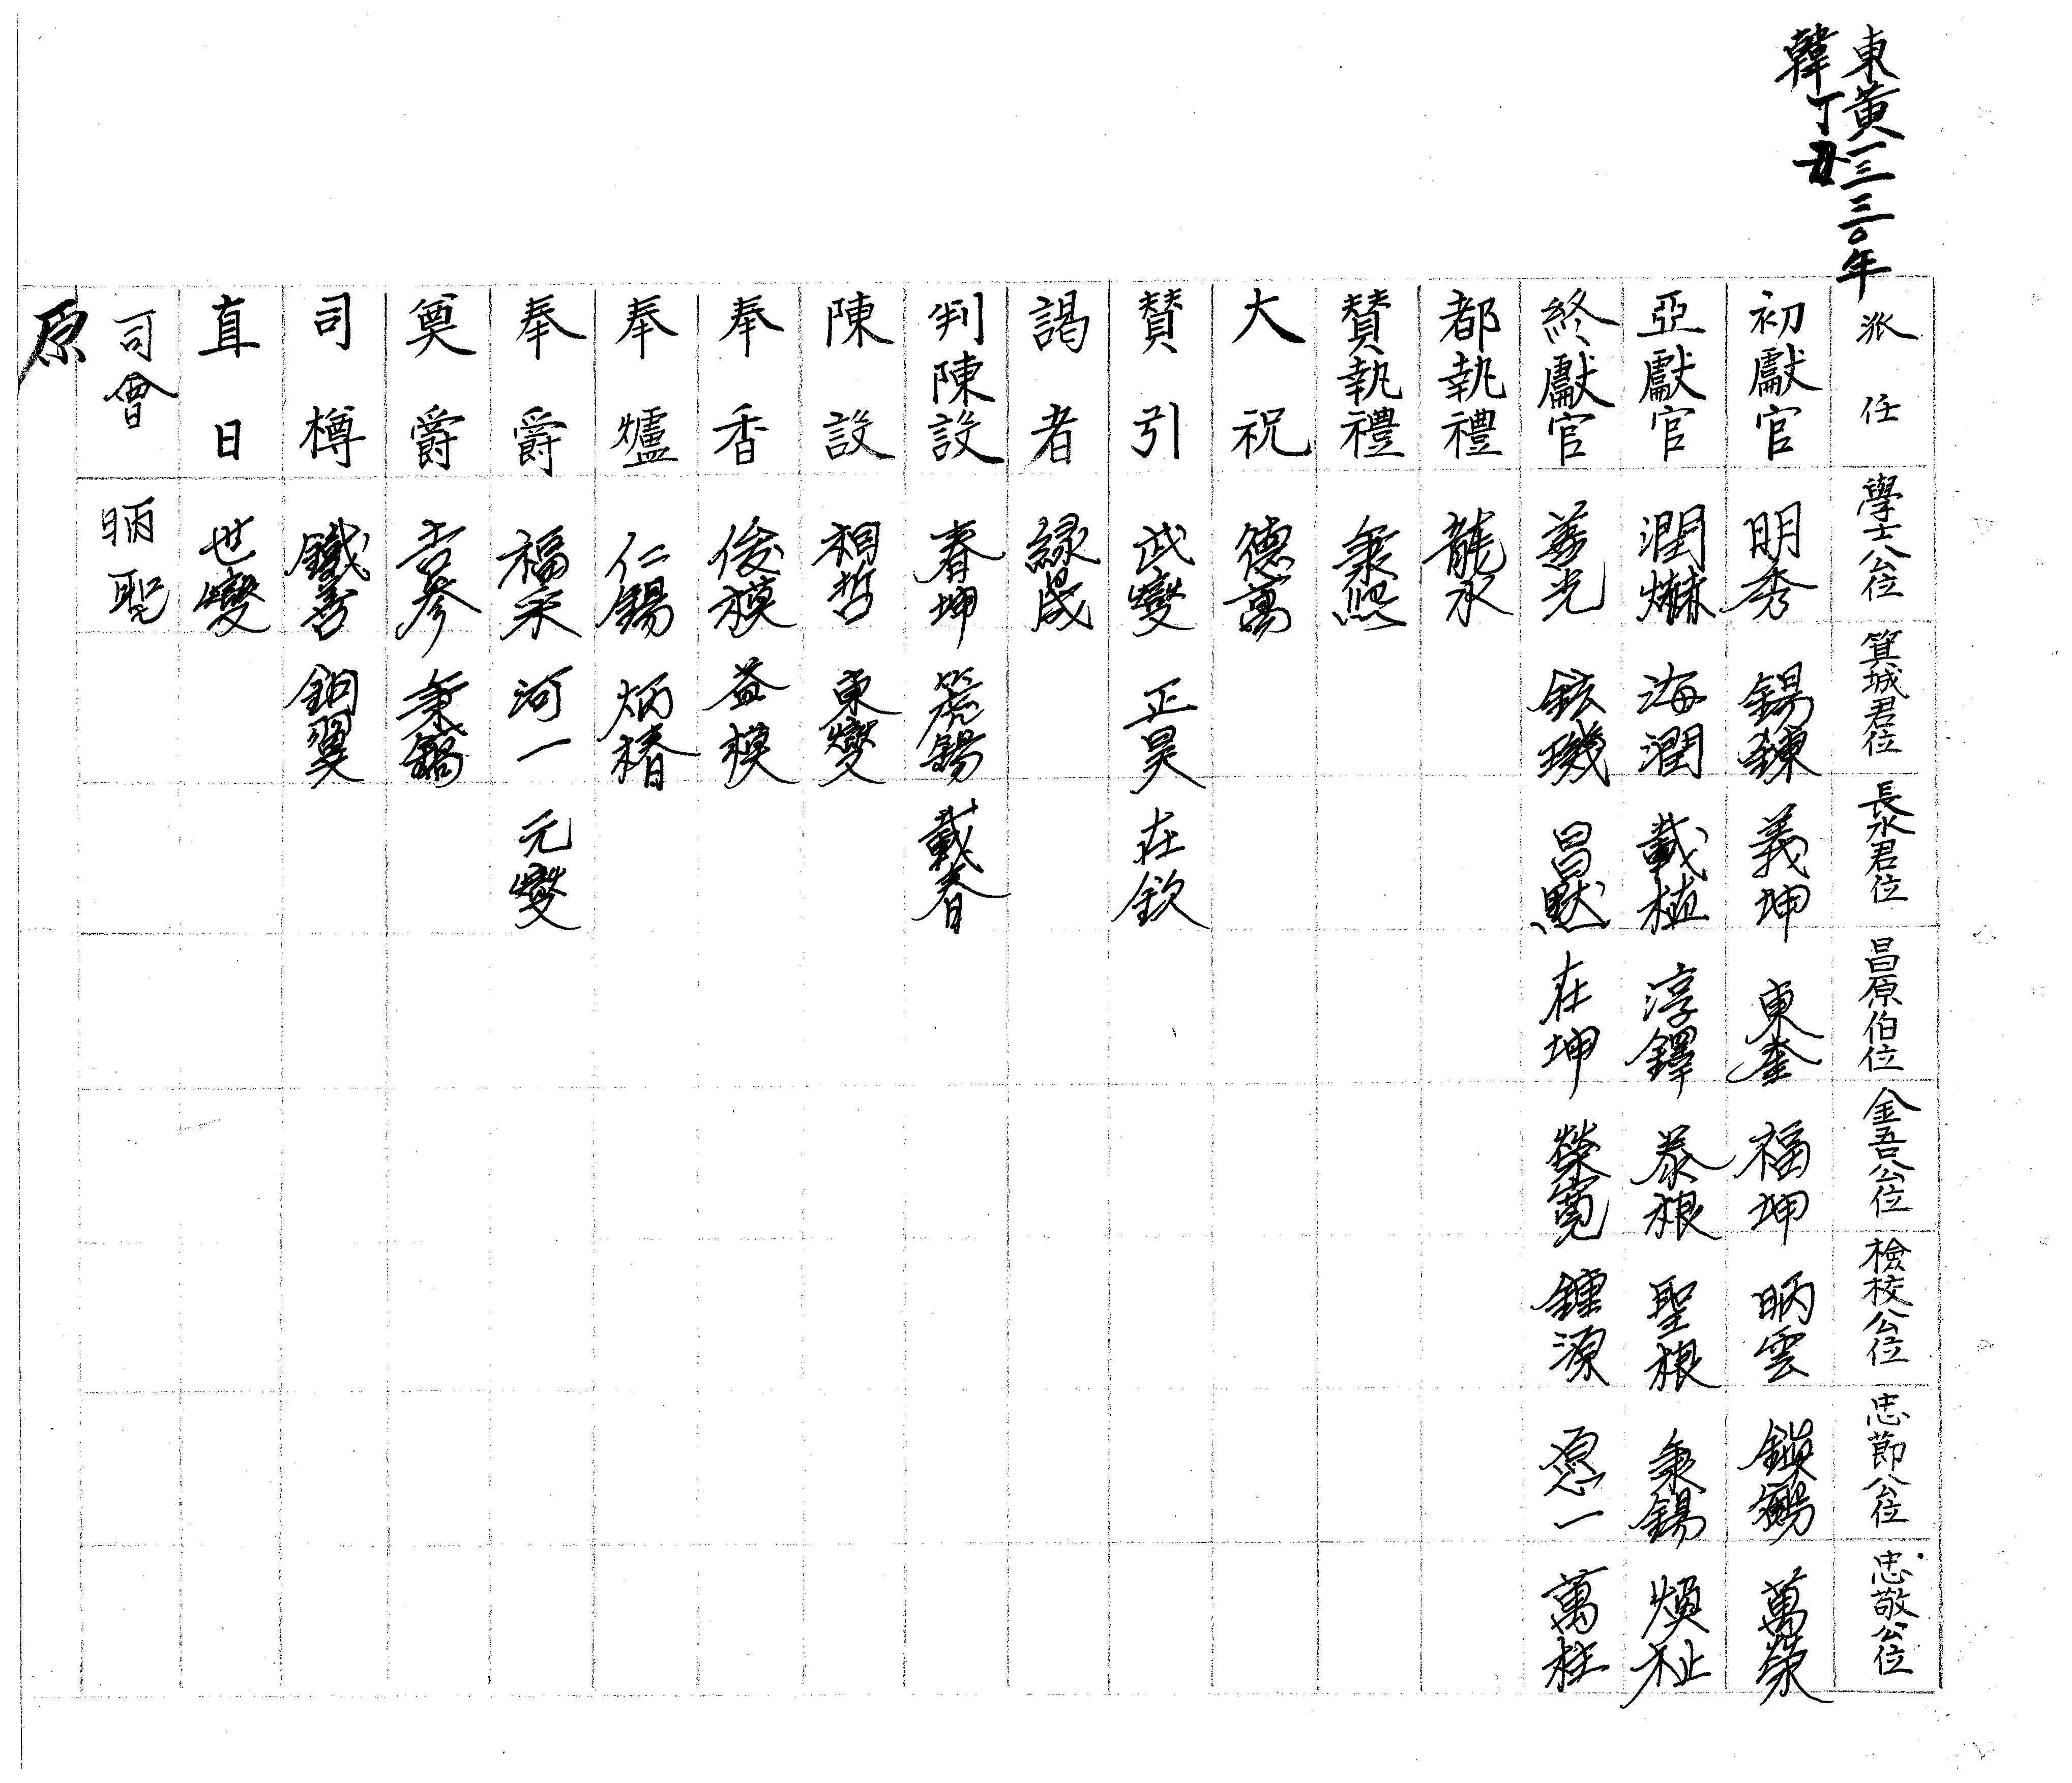 東黃一三三〇年
韓丁丑
派任 學士公位 箕城君位 長水君位 昌原伯位 金吾公位 檢校公位 忠節公位 忠敬公位
初獻官 明秀 錫鍊 義坤 東奎 福坤 昞雲 萬榮
亞獻官 潤爀 海潤 載植 淳鐸 泰根 聖根 秉錫 煥祉
終獻官 善光 鉉璣 昌默 在坤 榮寬 鍾源 愿一 萬柱
都執禮 龍水
贊執禮 秉熙
大祝 德萬
贊引 武燮 正昊 在欽
謁者 緑晟
判陳設 春坤 箕錫 載春
陳設 相哲 東燮
奉香 俊模 益模
奉爐 仁錫 炳椿
奉爵 福永 河一 元燮
奠爵 吉參 秉鎬
司樽 鐵善 鉬翼
直日 世燮
司會 昞聖
原